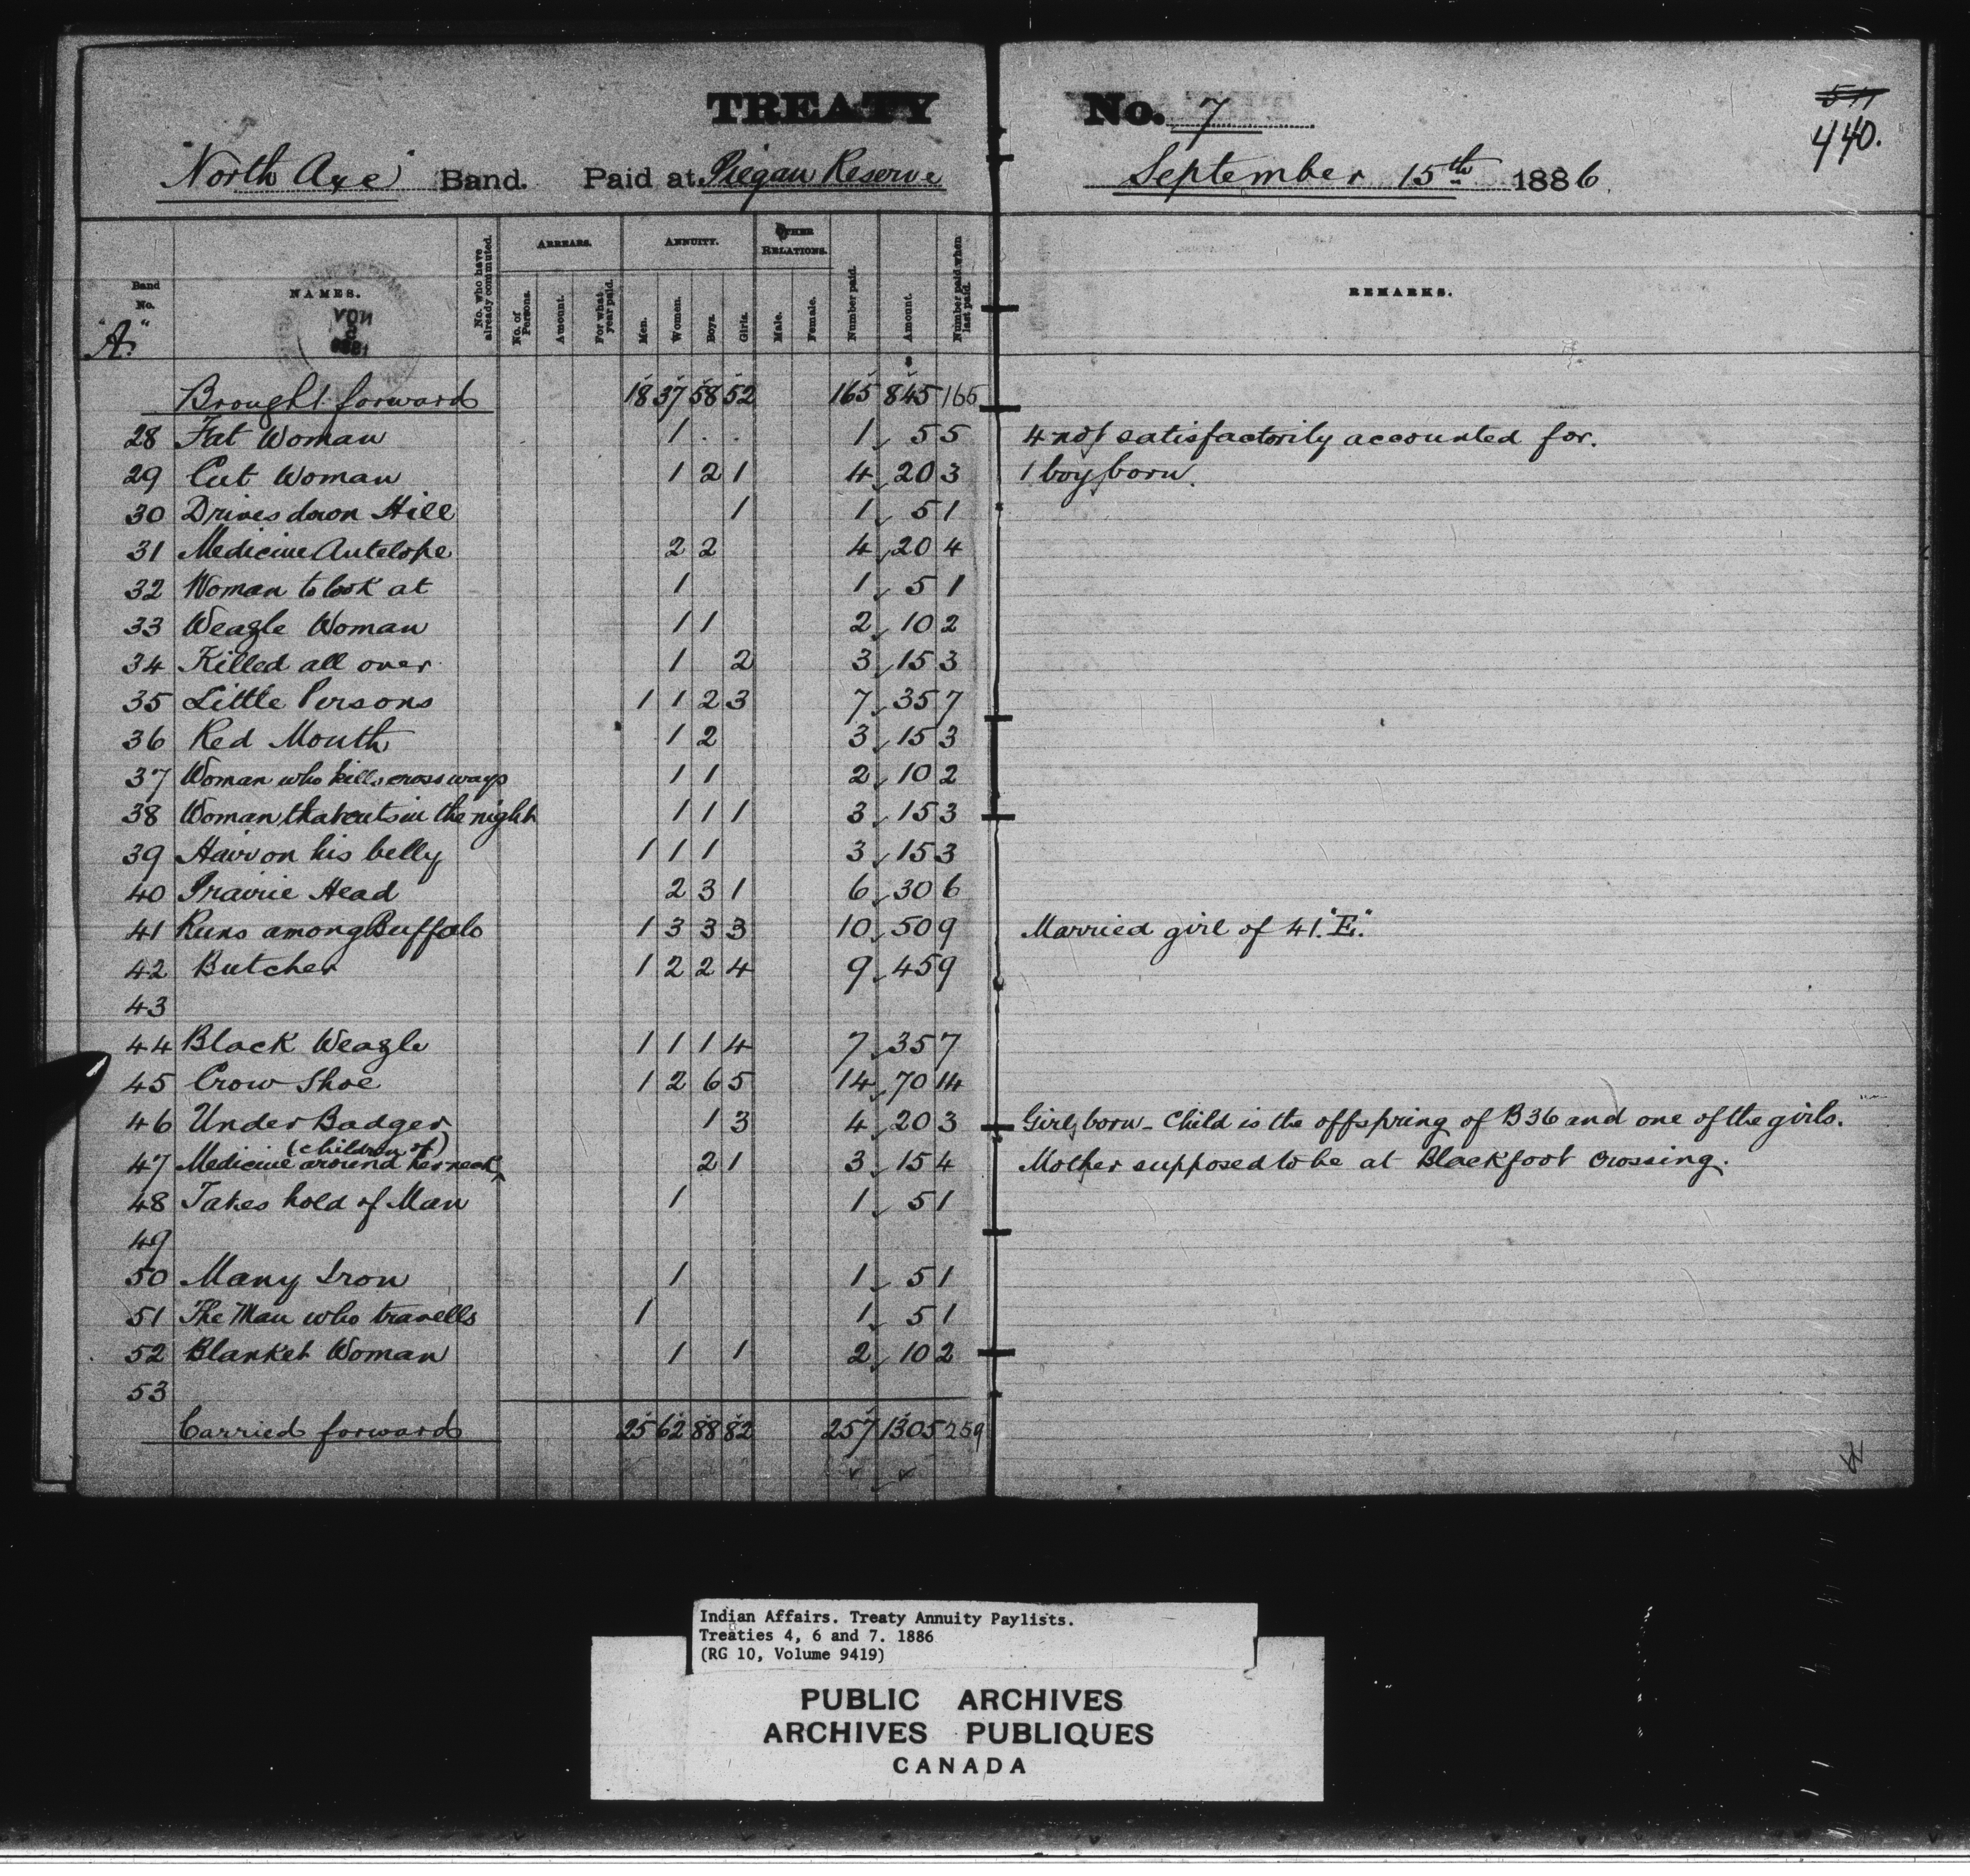 TREATY No. 7
511
440.
"North Axe" Band. Paid at Piegan Reserve September 15th 1886
Band No. NAMES. No. who have already commuted. ARREARS. No. of Persons. Amount. For what year paid. ANNUITY. Men. Women. Boys. Girls. OTHER RELATIONS. Male. Female. Number paid. Amount. Number paid when last paid. REMARKS.
"A"
NOV
Brought forward 18 37 58 52 165 845 165
28 Fat Woman 1 1 5 5 4 not satisfactorily accounted for.
29 Cut Woman 1 2 1 4 20 3 1 boy born.
30 Drives down Hill 1 1 5 1
31 Medicine Antelope 2 2 4 20 4
32 Woman to look at 1 1 5 1
33 Weazle Woman 1 1 2 10 2
34 Killed all over 1 2 3 15 3
35 Little Persons 1 1 2 3 7 35 7
36 Red Mouth 1 2 3 15 3
37 Woman who kills cross ways 1 1 2 10 2
38 Woman that cuts in the night 1 1 1 3 15 3
39 Hair on his belly 1 1 1 3 15 3
40 Prairie Head 2 3 1 6 30 6
41 Runs among Buffalo 1 3 3 3 10 50 9 Married girl of 41. "E."
42 Butcher 1 2 2 4 9 45 9
43
44 Black Weazle 1 1 1 4 7 35 7
45 Crow Shoe 1 2 6 5 14 70 14
46 Under Badger 1 3 4 20 3 Girl born - Child is the offspring of B36 and one of the girls.
(children of)
47 Medicine around her neck 2 1 3 15 4 Mother supposed to be at Blackfoot Crossing.
48 Takes hold of Man 1 1 5 1
49
50 Many Iron 1 1 5 1
51 The Man who travells 1 1 5 1
52 Blanket Woman 1 1 2 10 2
53
Carried forward 25 62 88 82 257 1305 259
Indian Affairs. Treaty Annuity Paylists.
Treaties 4, 6 and 7. 1886
(RG 10, Volume 9419)
PUBLIC ARCHIVES
ARCHIVES PUBLIQUES
CANADA